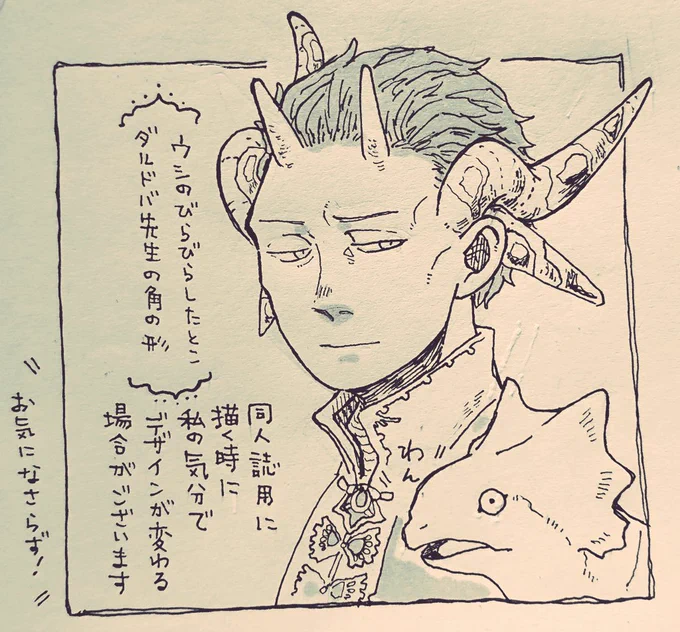 ウシのびらびらしたとこ
ダルドバ先生の角の形
同人誌用に
描く時に
私の気分で
デザインが変わる
場合がございます
お気になさらず!
わん